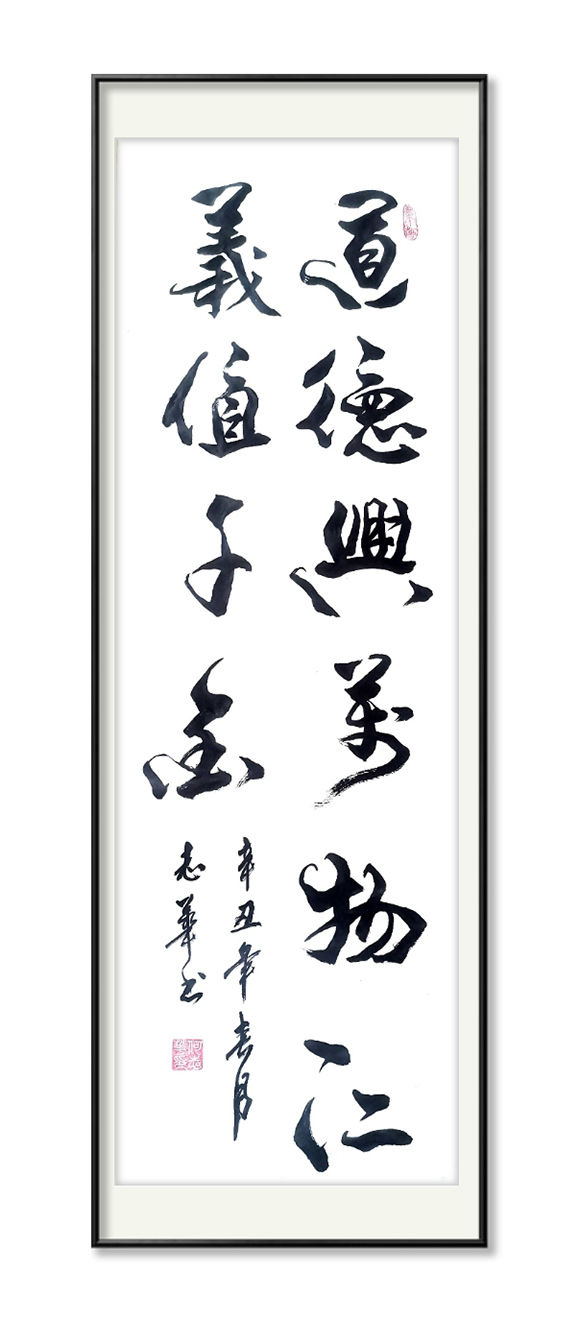 道德興萬物仁
義值千金
辛丑年春月
志華书